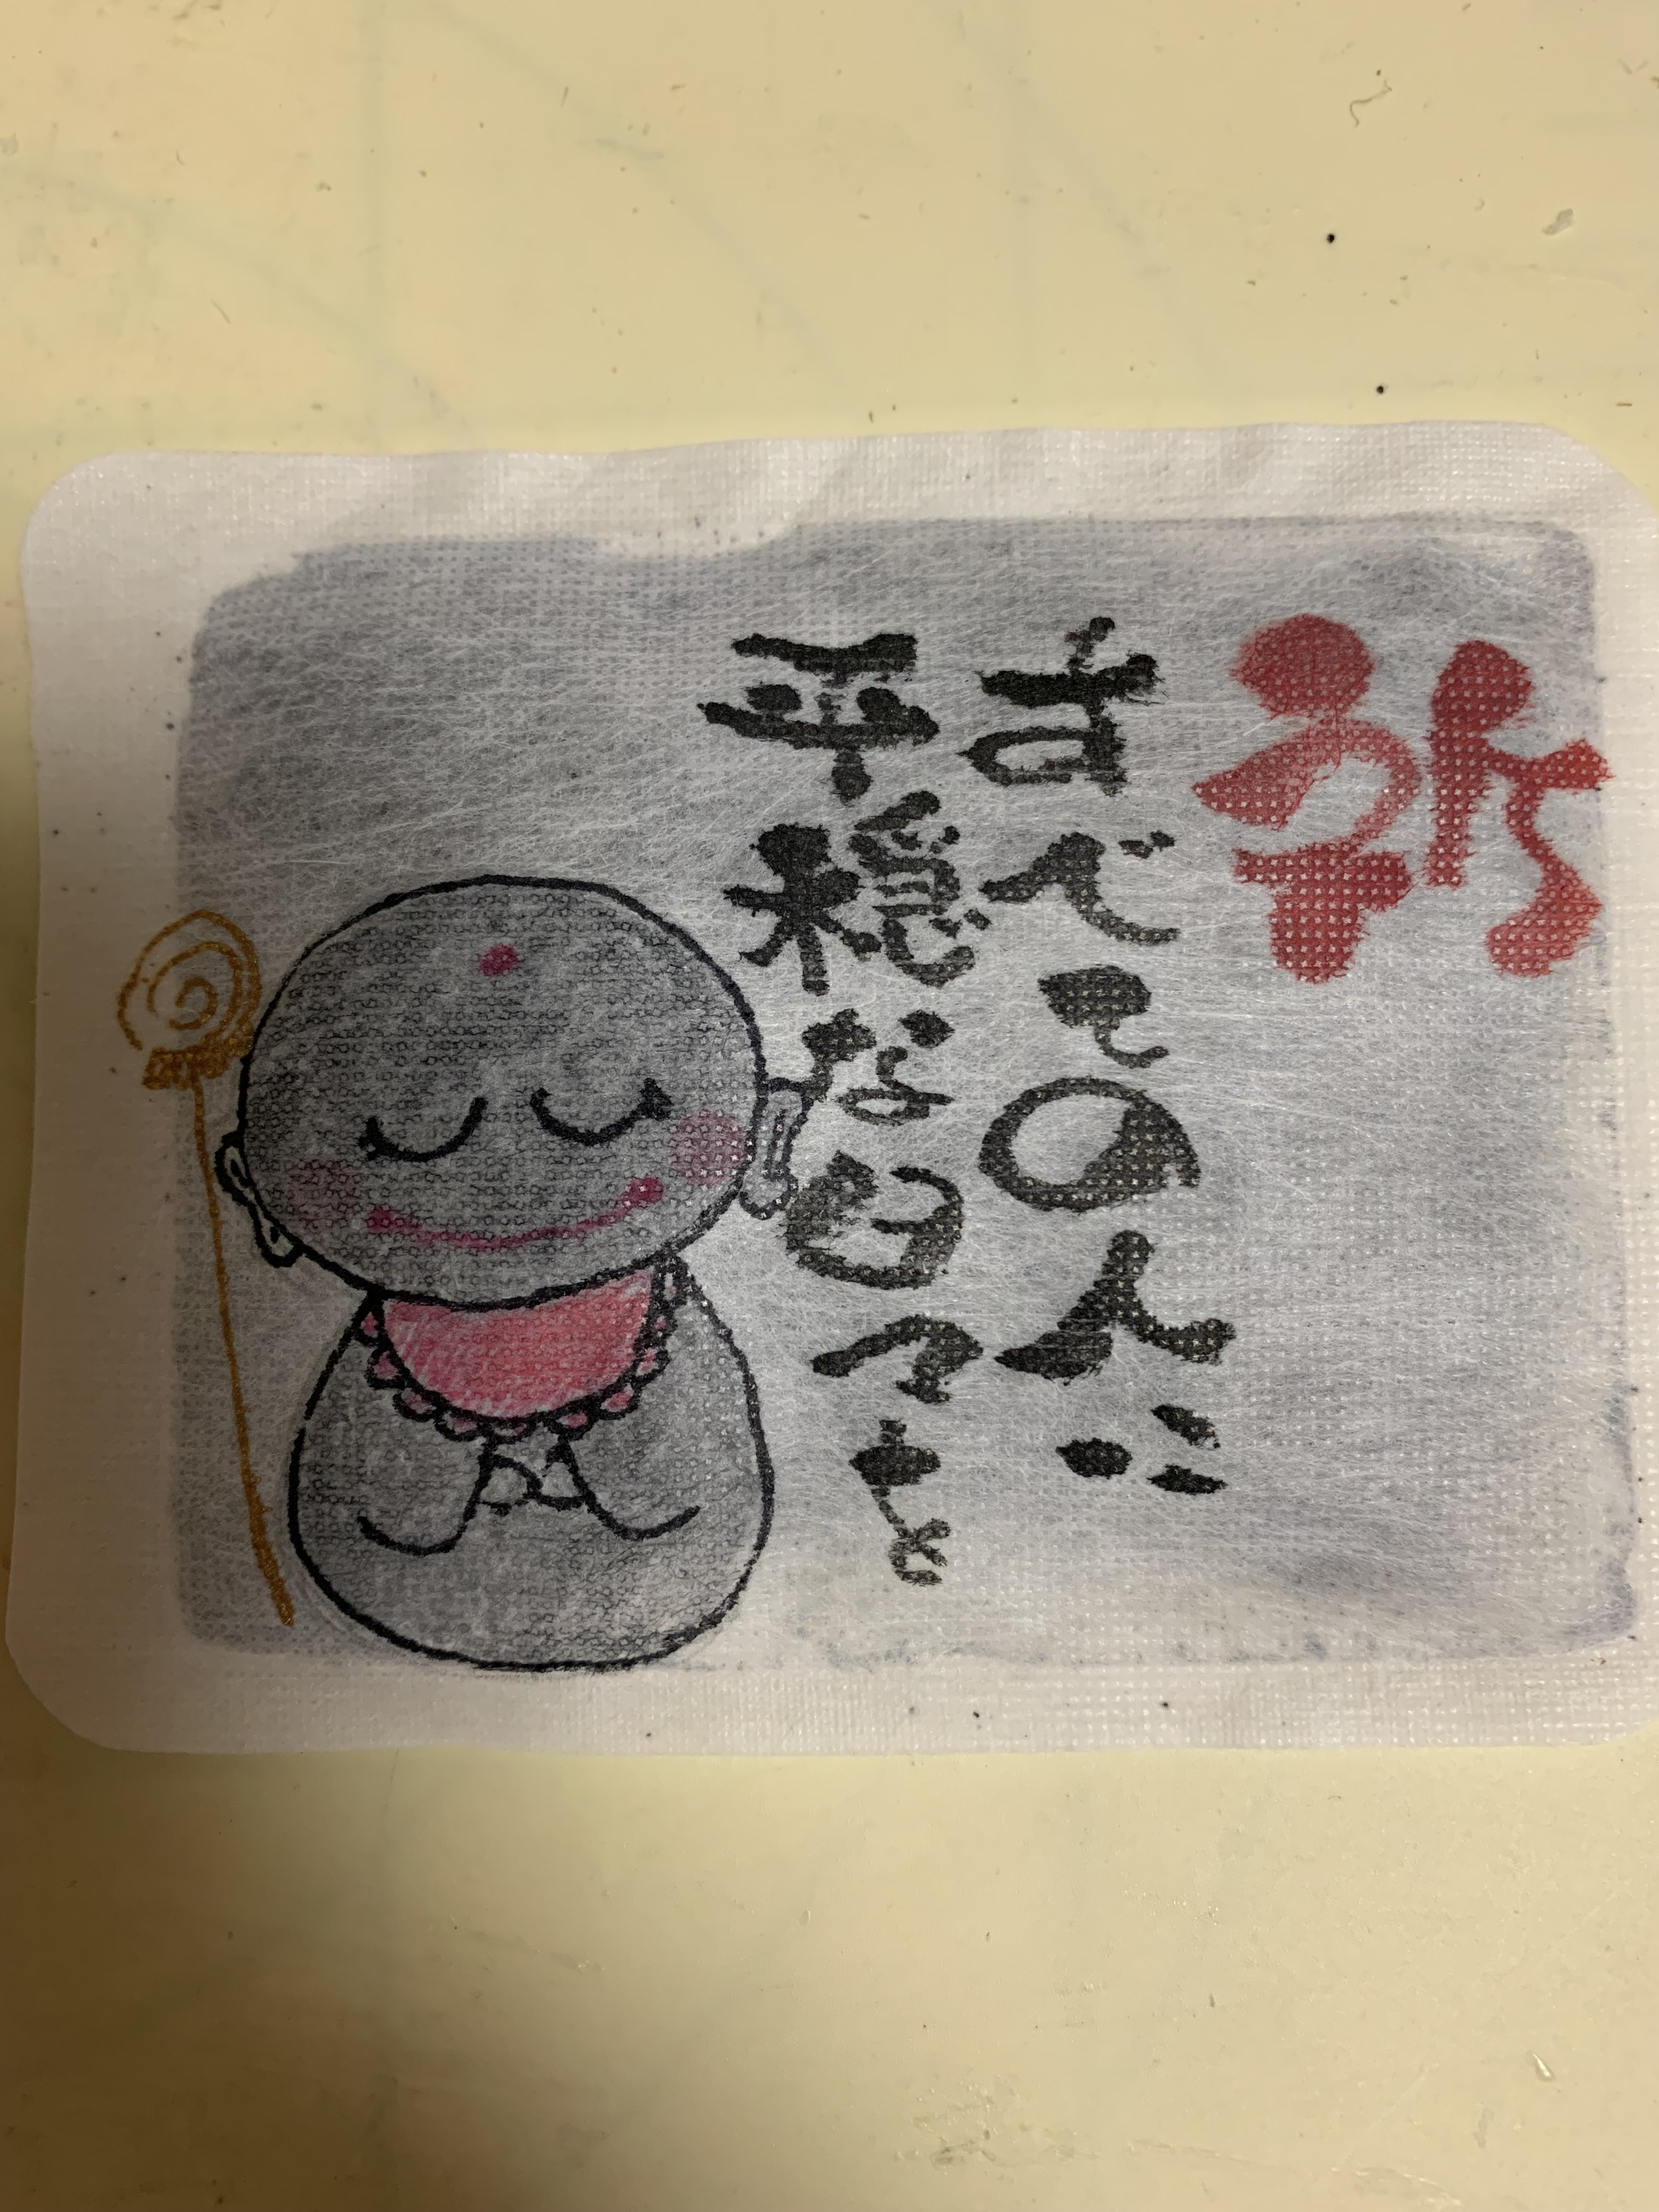 祈
すべての人に
平穏な日々を